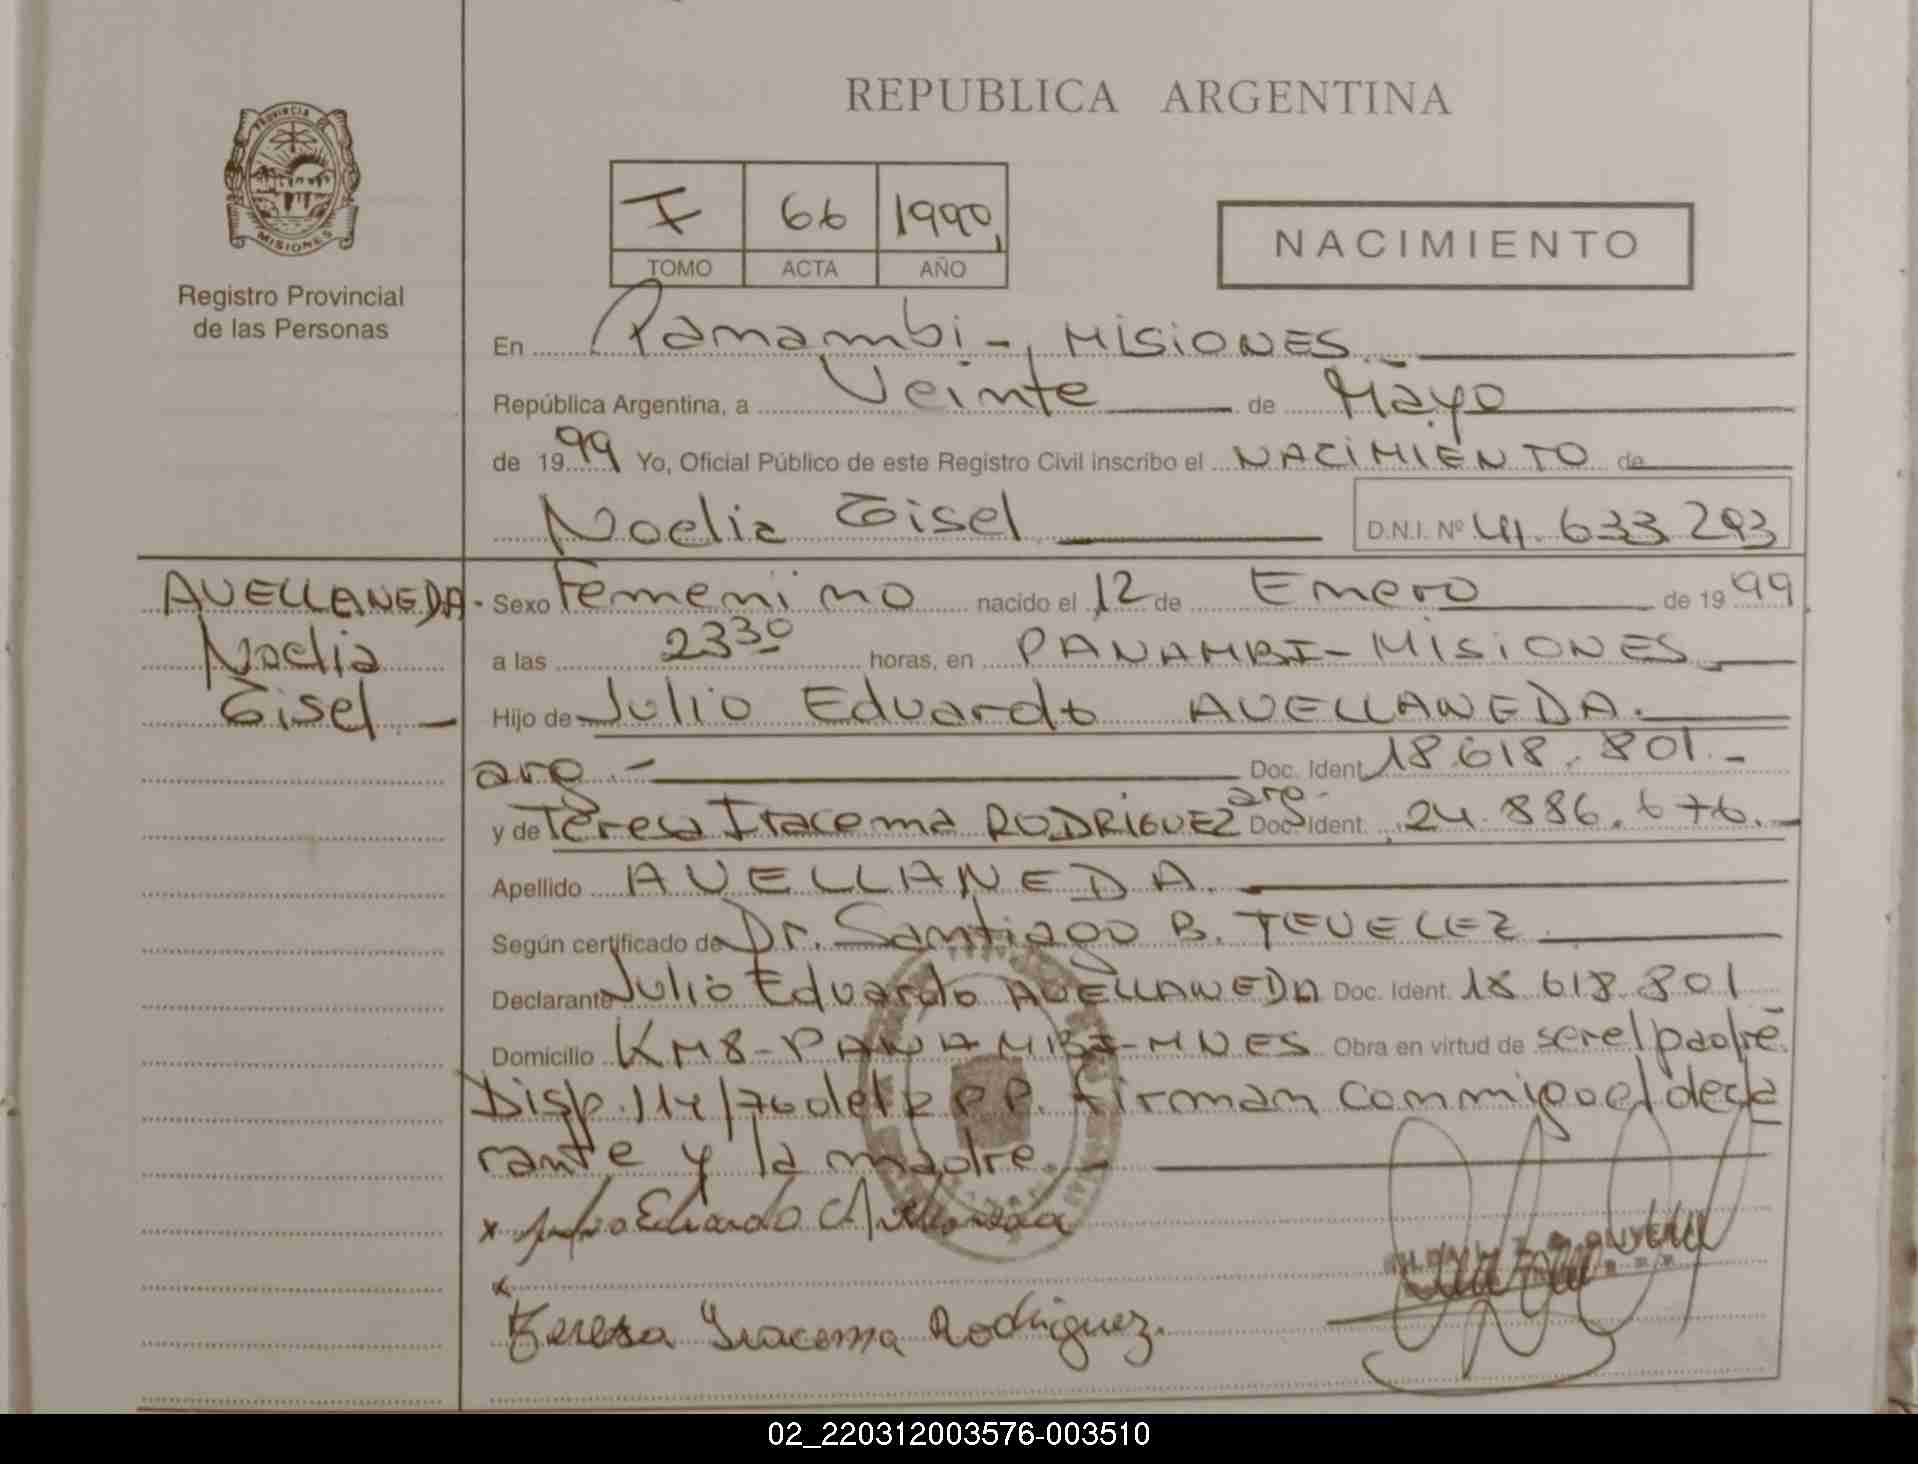 REPUBLICA ARGENTINA
PROVINCIA DE
MISIONES
Registro Provincial
de las Personas
I 66 1999
TOMO ACTA AÑO
NACIMIENTO
En Panambi-, MISIONES.-
República Argentina, a Veinte de Mayo
de 1999 Yo, Oficial Público de este Registro Civil inscribo el NACIMIENTO de
Noelia Gisel D.N.I. Nº 41.633.293
AVELLANEDA- Sexo Femenino nacido el 12 de Enero de 1999
Noelia a las 23 30 horas, en PANAMBI-MISIONES.
Gisel.- Hijo de Julio Eduardo AVELLANEDA.
arg.- Doc. Ident. 18.618.801.-
y de Teresa Iracema RODRIGUEZ arg.- Doc. Ident. 24.886.676.-
Apellido AVELLANEDA.
Según certificado de Dr. Santiago B. TEVELEZ.
Declarante Julio Eduardo AVELLANEDA Doc. Ident. 18.618.801
Domicilio KM8-PANAMBI-MNES Obra en virtud de ser el padre.
Disp. 114/76 del R.P.P. firman conmigo el decla
rante y la madre.-
x Julio Eduardo Avellaneda
x
Teresa Iracema Rodriguez.
02_220312003576-003510